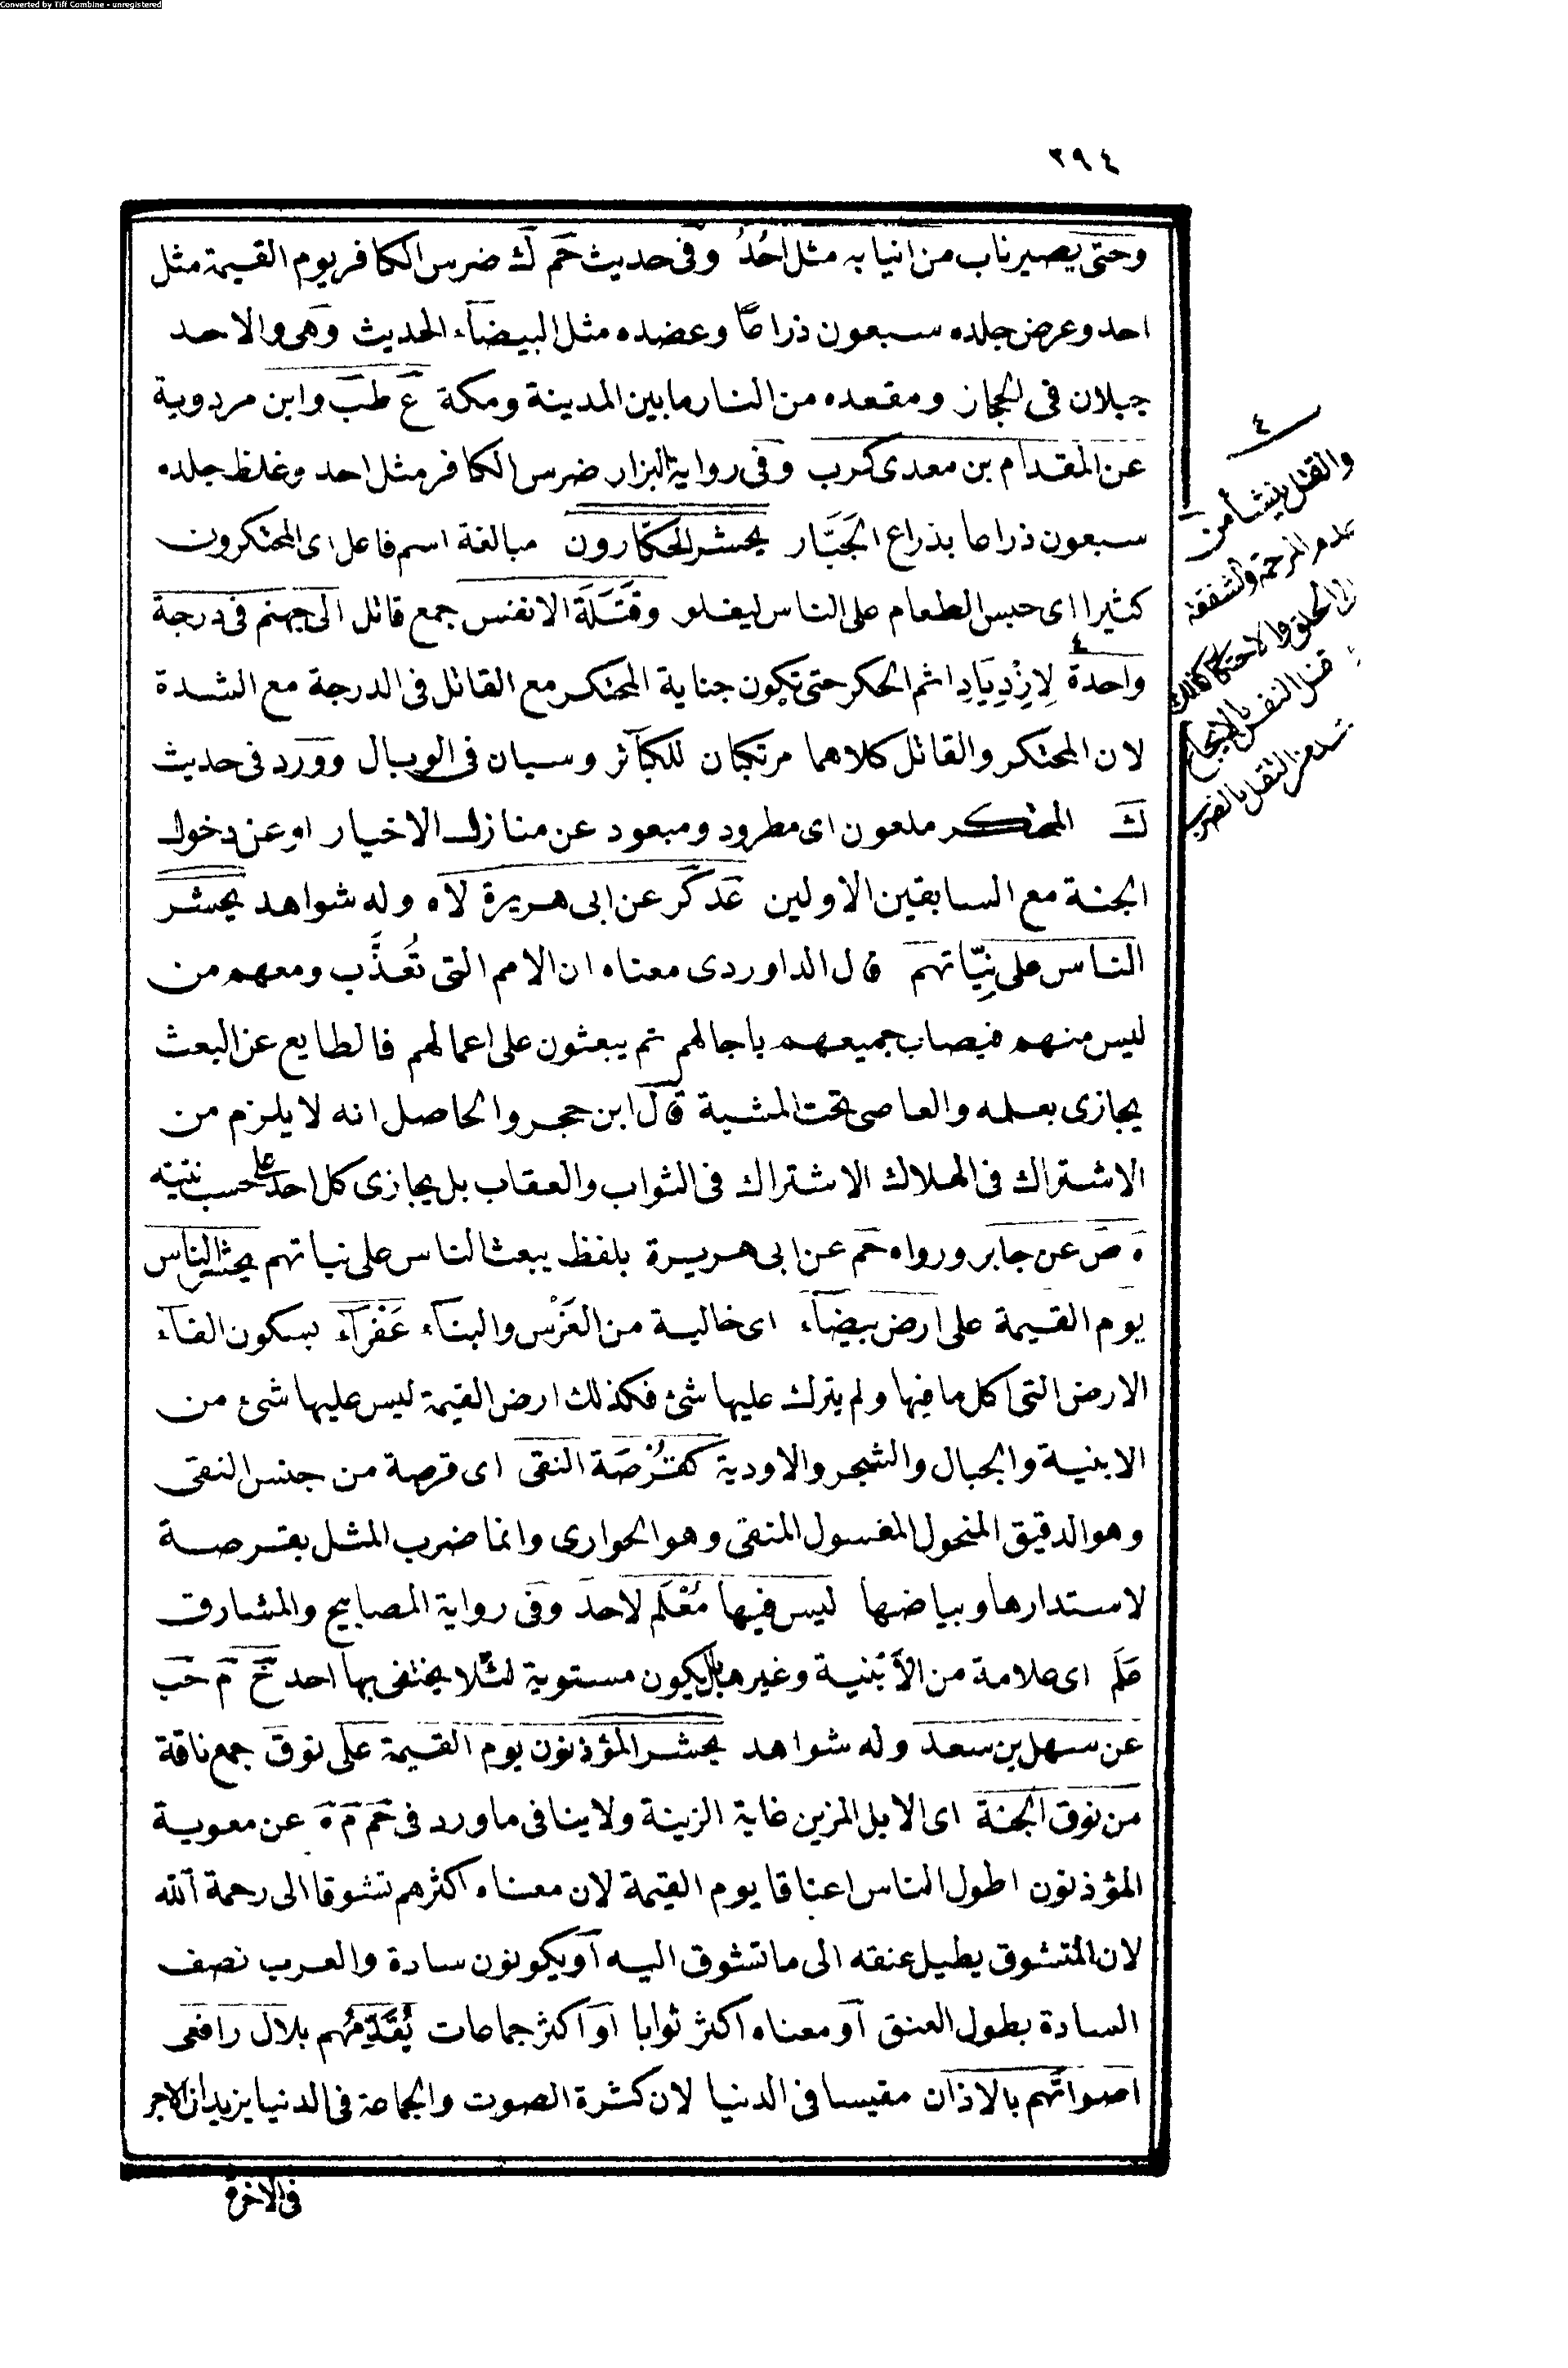 Converted by Tiff Combine - unregistered
٣٩٤
وحتى يصير ناب من انيابه مثل احُدُ وفى حديث حم ك ضرس الكافر يوم القيمة مثل
احد وعرض جلده سبعون ذراعا وعضده مثل البيضآء الحديث وهى والاحد
جبلان فى الحجاز ومقعده من النار ما بين المدينة ومكة ع طب وابن مردوية
عن المقدام بن معدى كرب وفى رواية البزار ضرس الكافر مثل احد وغلظ جلده
سبعون ذراعا بذراع الجَبَّار يحشر الحكارون مبالغة اسم فاعل اى المحتكرون
كثيرا اى حبس الطعام على الناس ليغلو وقَتَلَة الانفس جمع قاتل الى جهنم فى درجة
واحدة ٤ لِازْدِيَادِ اثم الحكر حتى تكون جناية المحتكر مع القاتل فى الدرجة مع الشدة
لان المحتكر والقاتل كلاهما مرتكبان للكبآئر وسيان فى الوبال وورد فى حديث
ك المحتكر ملعون اى مطرود ومبعود عن منازل الاخيار او عن دخول
الجنة مع السابقين الاولين عد كر عن ابى هريرة لاه وله شواهد يحشر
الناس على نِيّاتهم قال الداوردى معناه ان الامم التى تُعذَّب ومعهم من
ليس منهم فيصاب جميعهم باجالهم ثم يبعثون على اعمالهم فالطايع عن البعث
يجازى بعمله والعاصى تحت المشية قال ابن حجر والحاصل انه لا يلزم من
الاشتراك فى الهلاك الاشتراك فى الثواب والعقاب بل يجازى كل احد على حسب نيته
ه ض عن جابر ورواه حم عن ابى هريرة بلفظ يبعث الناس على نياتهم يحشر الناس
يوم القيمة على ارض بيضآء اى خالية من الغَرْس والبنآء عَفْرَآء بسكون الفآء
الارض التى اكل ما فيها ولم يترك عليها شئ فكذلك ارض القيمة ليس عليها شئ من
الابنية والجبال والشجر والاودية كقُرْصَة النقى اى قرصة من جنس النقى
وهو الدقيق المنحول المغسول المنقى وهو الحوارى وانما ضرب المثل بقرصة
لاستدارها وبياضها ليس فيها مَعْلَم لاحد وفى رواية المصابيح والمشارق
عَلَم اى علامة من الأبنية وغيرها بل يكون مستوية لئلا يختفى بها احد خ م حب
عن سهل بن سعد وله شواهد يحشر المؤذنون يوم القيمة على نوق جمع ناقة
من نوق الجنة اى الابل المزين غاية الزينة ولا ينافى ما ورد فى حم م ه عن معوية
المؤذنون اطول الناس اعناقا يوم القيمة لان معناه اكثرهم تشوقا الى رحمة الله
لان المتشوق يطيل عنقه الى ما تشوق اليه او يكونون سادة والعرب تصف
السادة بطول العنق او معناه اكثر ثوابا او اكثر جماعات يُقَدِّمُهم بلال رافعى
اصواتهم بالاذان مقيسا فى الدنيا لان كثرة الصوت والجماعة فى الدنيا يزيدان الاجر
فى الاخرة
٤
والقتل ينشأ من
عدم المرحمة والشفقة
الخلق والاحتكار كذلك
قتل النفس
القتل بالضرب